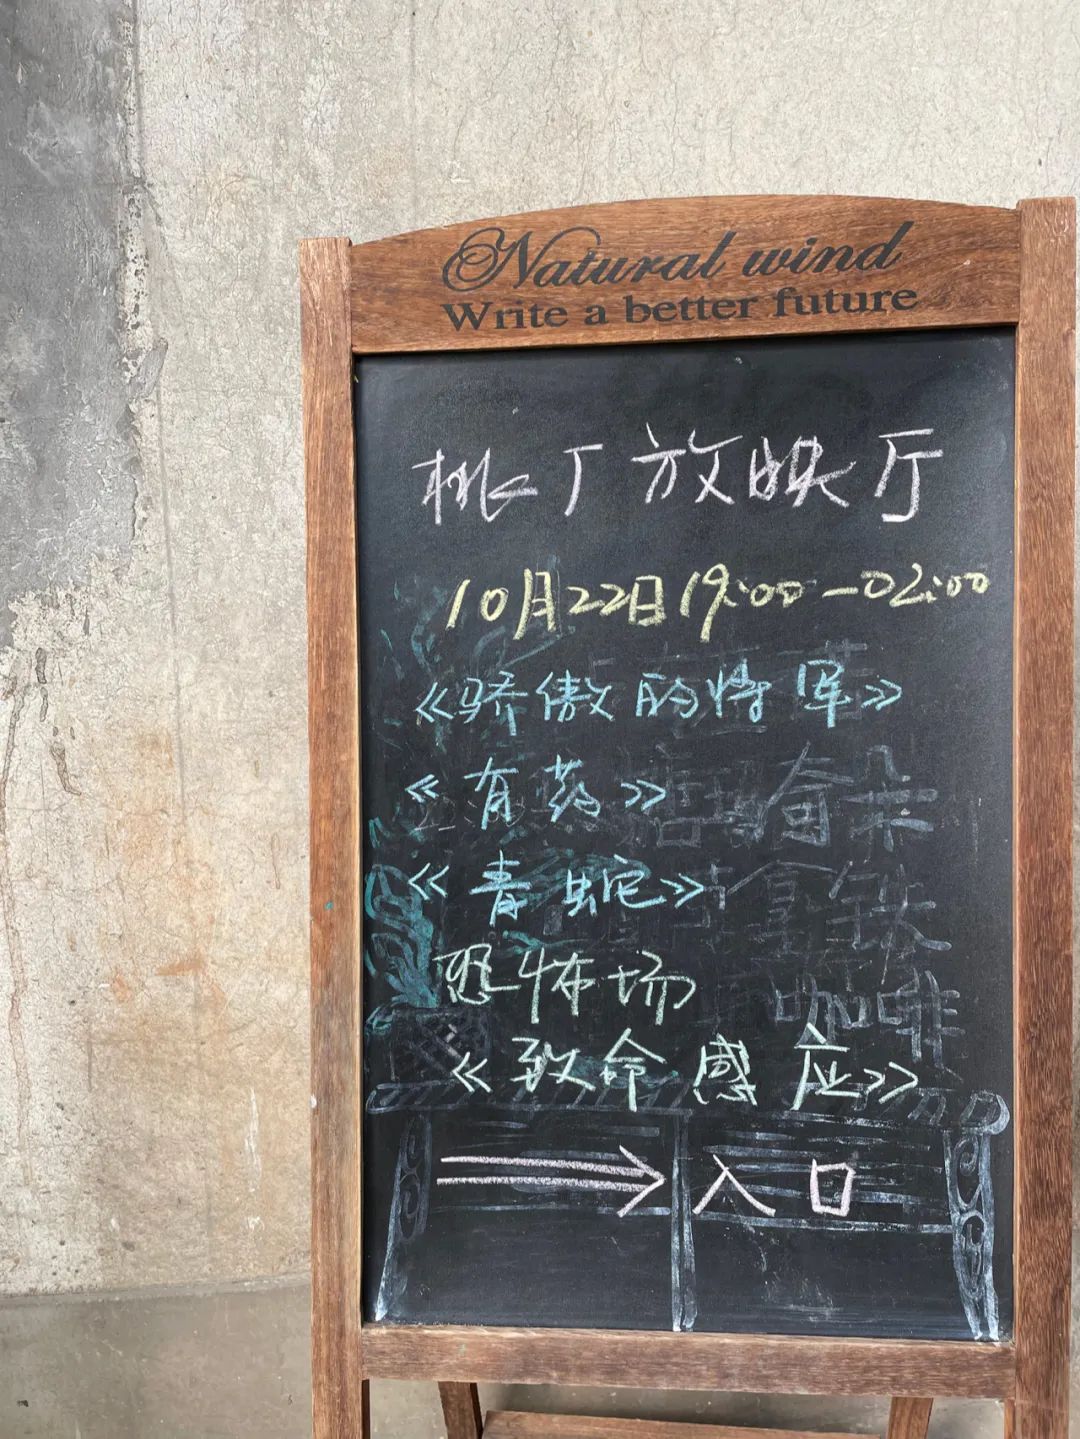 Natural wind
Write a better future
桃厂放映厅
10月22日19:00-02:00
《骄傲的将军》
《有药》
《青蛇》
恐怖场
《致命感应》
入口
奇朵
拿铁
咖啡